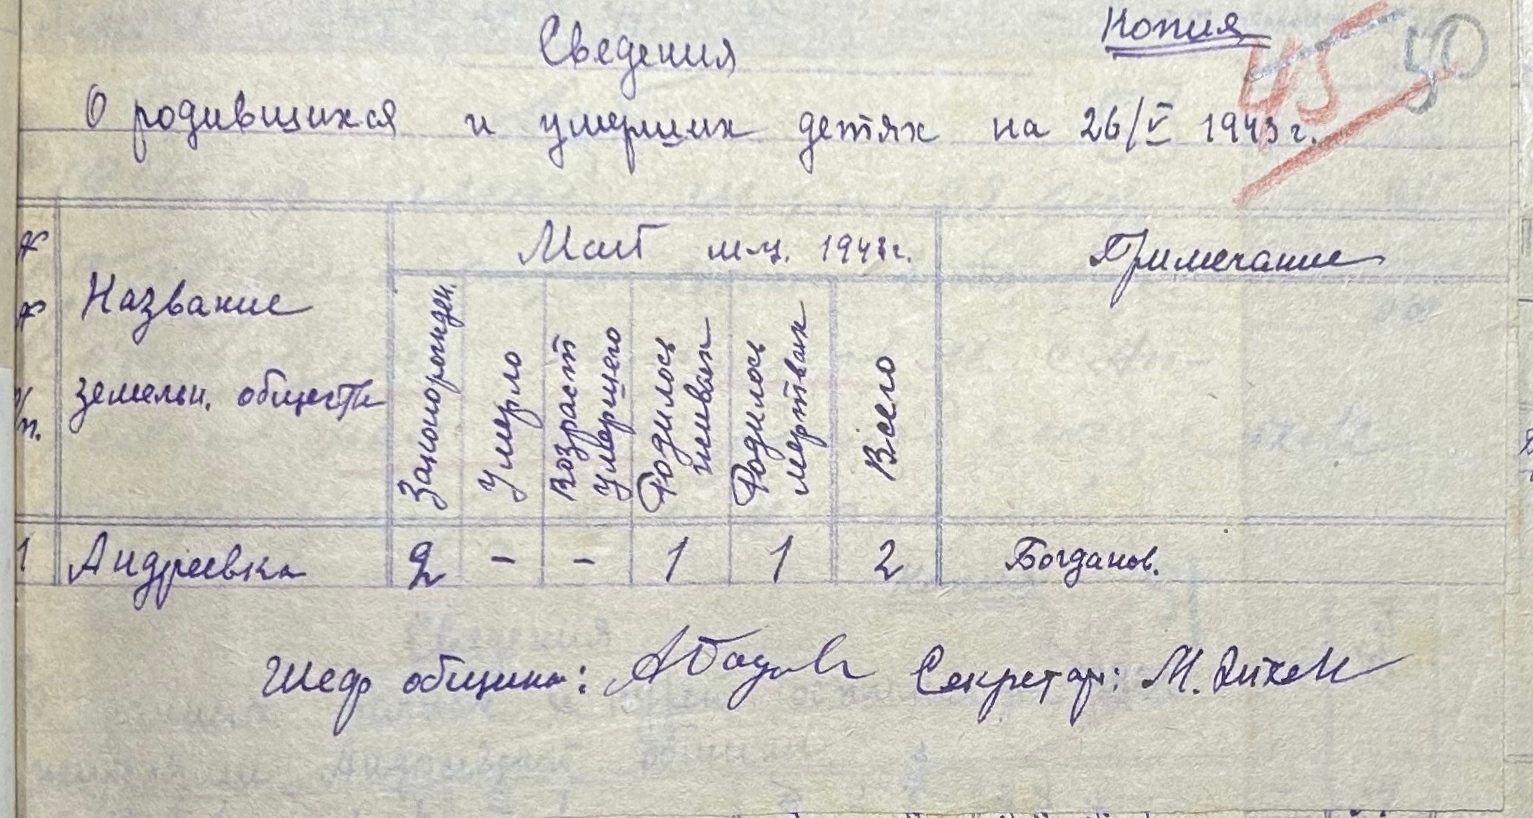 Копия
45 50
Сведения
О родившихся и умерших детях на 26/V 1943 г.
№ № п/п.
Название земельн. обществ
Май м-ц. 1943 г.
Примечание
Законорожден.
Умерло
Возраст умершего
Родилось живых
Родилось мертвых
Всего
1 Андреевка 2 - - 1 1 2 Богданов.
Шеф общины: Секретарь: М.